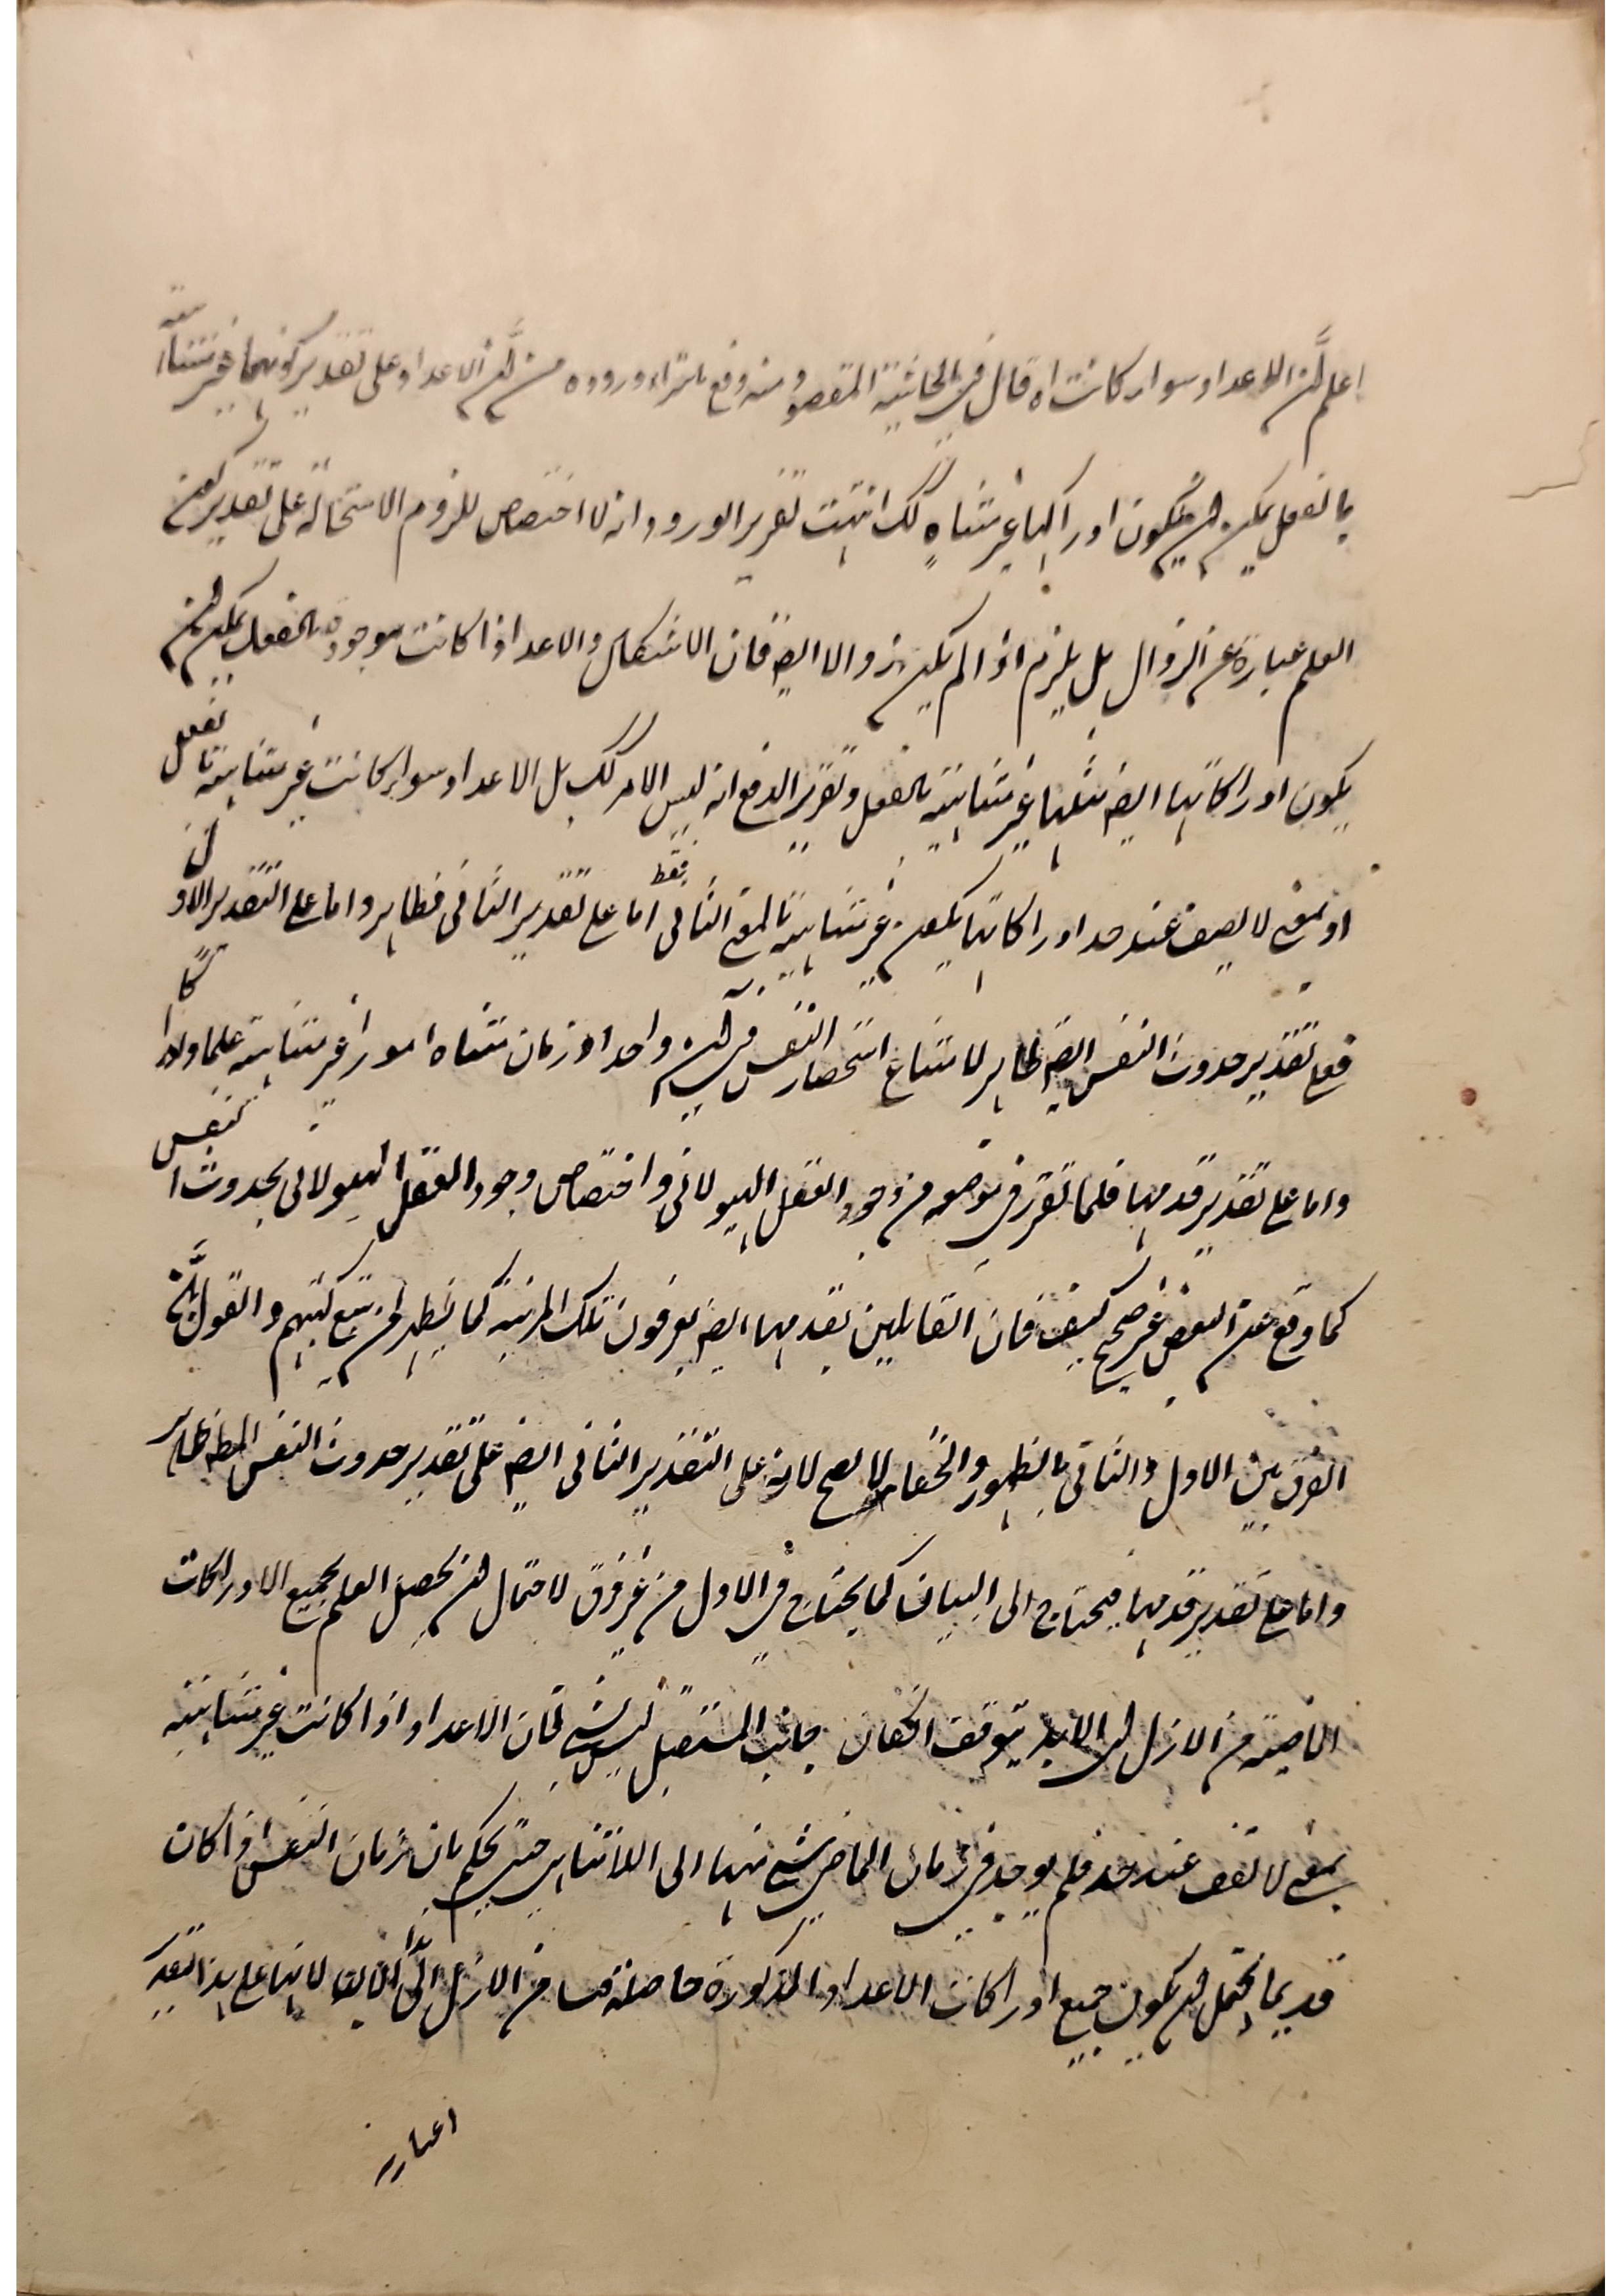 اعلم ان الاعداد سواء كانت اه قال فى الحاشية المقصود منه دفع ما يتراءى وروده من ان الاعداد على تقدير كونها غير متناهية
بالفعل يمكن ان يكون ادراكها غير متناه كك انتهت تقرير الورود انه لا اختصاص للزوم الاستحالة على تقدير كون
العلم عبارة عن الزوال بل يلزم اذا لم يكن زوالا ايضا فان الاشكال والاعداد اذا كانت موجودة بالفعل يمكن ان
يكون ادراكاتها ايضا مثلها غير متناهية بالفعل وتقرير الدفع انه ليس الامر كك بل الاعداد سواء كانت غير متناهية بالفعل
او بمعنى لا يقف عند حد ادراكاتها يكون غير متناهية بالمعنى الثانى فقط اما على تقدير الثانى فظاهر واما على التقدير الاول
فعلى تقدير حدوث النفس ايضا ظاهر لامتناع استحضار النفس فى آن واحد او زمان متناه امورا غير متناهية علما وادراكا
واما على تقدير قدمها فلما تقرر فى موضعه من وجود العقل الهيولانى واختصاص وجود العقل الهيولانى بحدوث النفس
كما وقع عن البعض غير صحيح كيف فان القائلين بقدمها ايضا يعرفون تلك المرتبة كما يظهر لمن تتبع كتبهم والقول بان
الفرق بين الاول والثانى بالظهور والخفاء لا يصح لانه على التقدير الثانى ايضا على تقدير حدوث النفس المط ظاهر
واما على تقدير قدمها فيحتاج الى البيان كما يحتاج فى الاول من غير فرق لاحتمال ان يحصل العلم بجميع الادراكات
الماضية من الازل الى الابد يتوقف جانب المستقبل ليس بشئ فان الاعداد اذا كانت غير متناهية
بمعنى لا تقف عند حد فلم يوجد فى زمان الماضى شئ منها الى اللاتناهى حتى يحكم بان زمان النفس اذا كان
قديما يحتمل ان يكون جميع ادراكات الاعداد المذكورة حاصلة من الازل الى الان لانها على هذا التقدير
اعتبارية